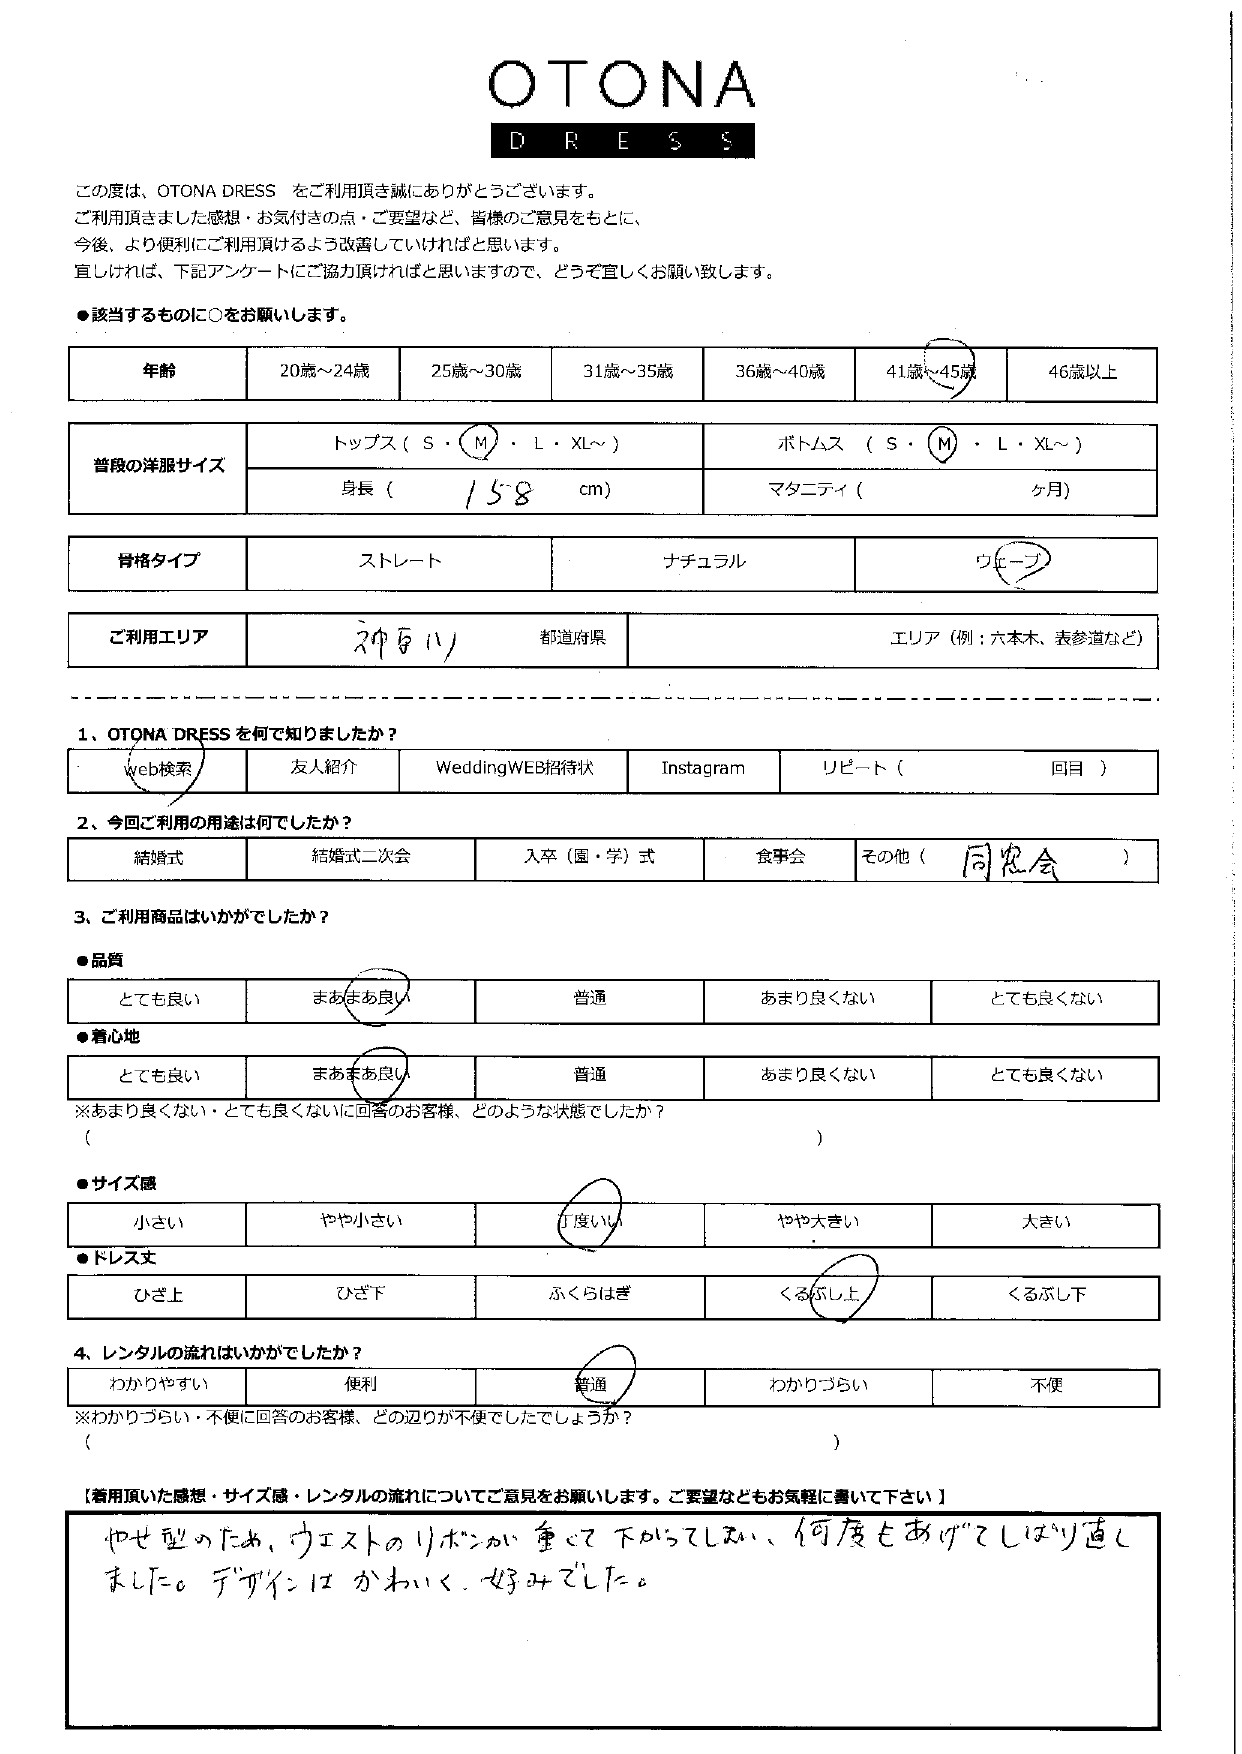 OTONA
DRESS
この度は、OTONA DRESS　をご利用頂き誠にありがとうございます。
ご利用頂きました感想・お気付きの点・ご要望など、皆様のご意見をもとに、
今後、より便利にご利用頂けるよう改善していければと思います。
宜しければ、下記アンケートにご協力頂ければと思いますので、どうぞ宜しくお願い致します。
●該当するものに○をお願いします。
年齢 20歳～24歳 25歳～30歳 31歳～35歳 36歳～40歳 41歳～45歳 46歳以上
普段の洋服サイズ トップス ( S ・ M ・ L ・ XL～ ) ボトムス ( S ・ M ・ L ・ XL～ )
身長 ( 158 cm) マタニティ ( ヶ月)
骨格タイプ ストレート ナチュラル ウェーブ
ご利用エリア 神奈川 都道府県 エリア（例：六本木、表参道など）
1、OTONA DRESS を何で知りましたか？
web検索 友人紹介 WeddingWEB招待状 Instagram リピート（ 回目 ）
2、今回ご利用の用途は何でしたか？
結婚式 結婚式二次会 入卒（園・学）式 食事会 その他（ 同窓会 ）
3、ご利用商品はいかがでしたか？
●品質
とても良い まあまあ良い 普通 あまり良くない とても良くない
●着心地
とても良い まあまあ良い 普通 あまり良くない とても良くない
※あまり良くない・とても良くないに回答のお客様、どのような状態でしたか？
( )
●サイズ感
小さい やや小さい 丁度いい やや大きい 大きい
●ドレス丈
ひざ上 ひざ下 ふくらはぎ くるぶし上 くるぶし下
4、レンタルの流れはいかがでしたか？
わかりやすい 便利 普通 わかりづらい 不便
※わかりづらい・不便に回答のお客様、どの辺りが不便でしたでしょうか？
( )
【着用頂いた感想・サイズ感・レンタルの流れについてご意見をお願いします。ご要望などもお気軽に書いて下さい 】
やせ型のため、ウエストのリボンが重くて下がってしまい、何度もあげてしばり直し
ました。デザインはかわいく、好みでした。